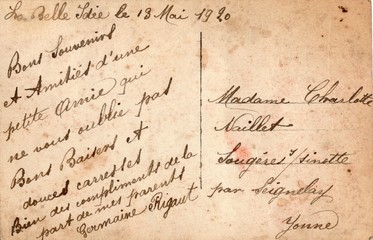 La Belle Idée le 13 Mai 1920
Bons Souvenirs
et Amitiés d'une
petite Amie qui
ne vous oublie pas
Bons Baisers et
douces carresses
Bien des compliments de la
part de mes parents
Germaine Rigaut
Madame Charlotte
Naillet
Sougères s/sinotte
par Seignelay
Yonne